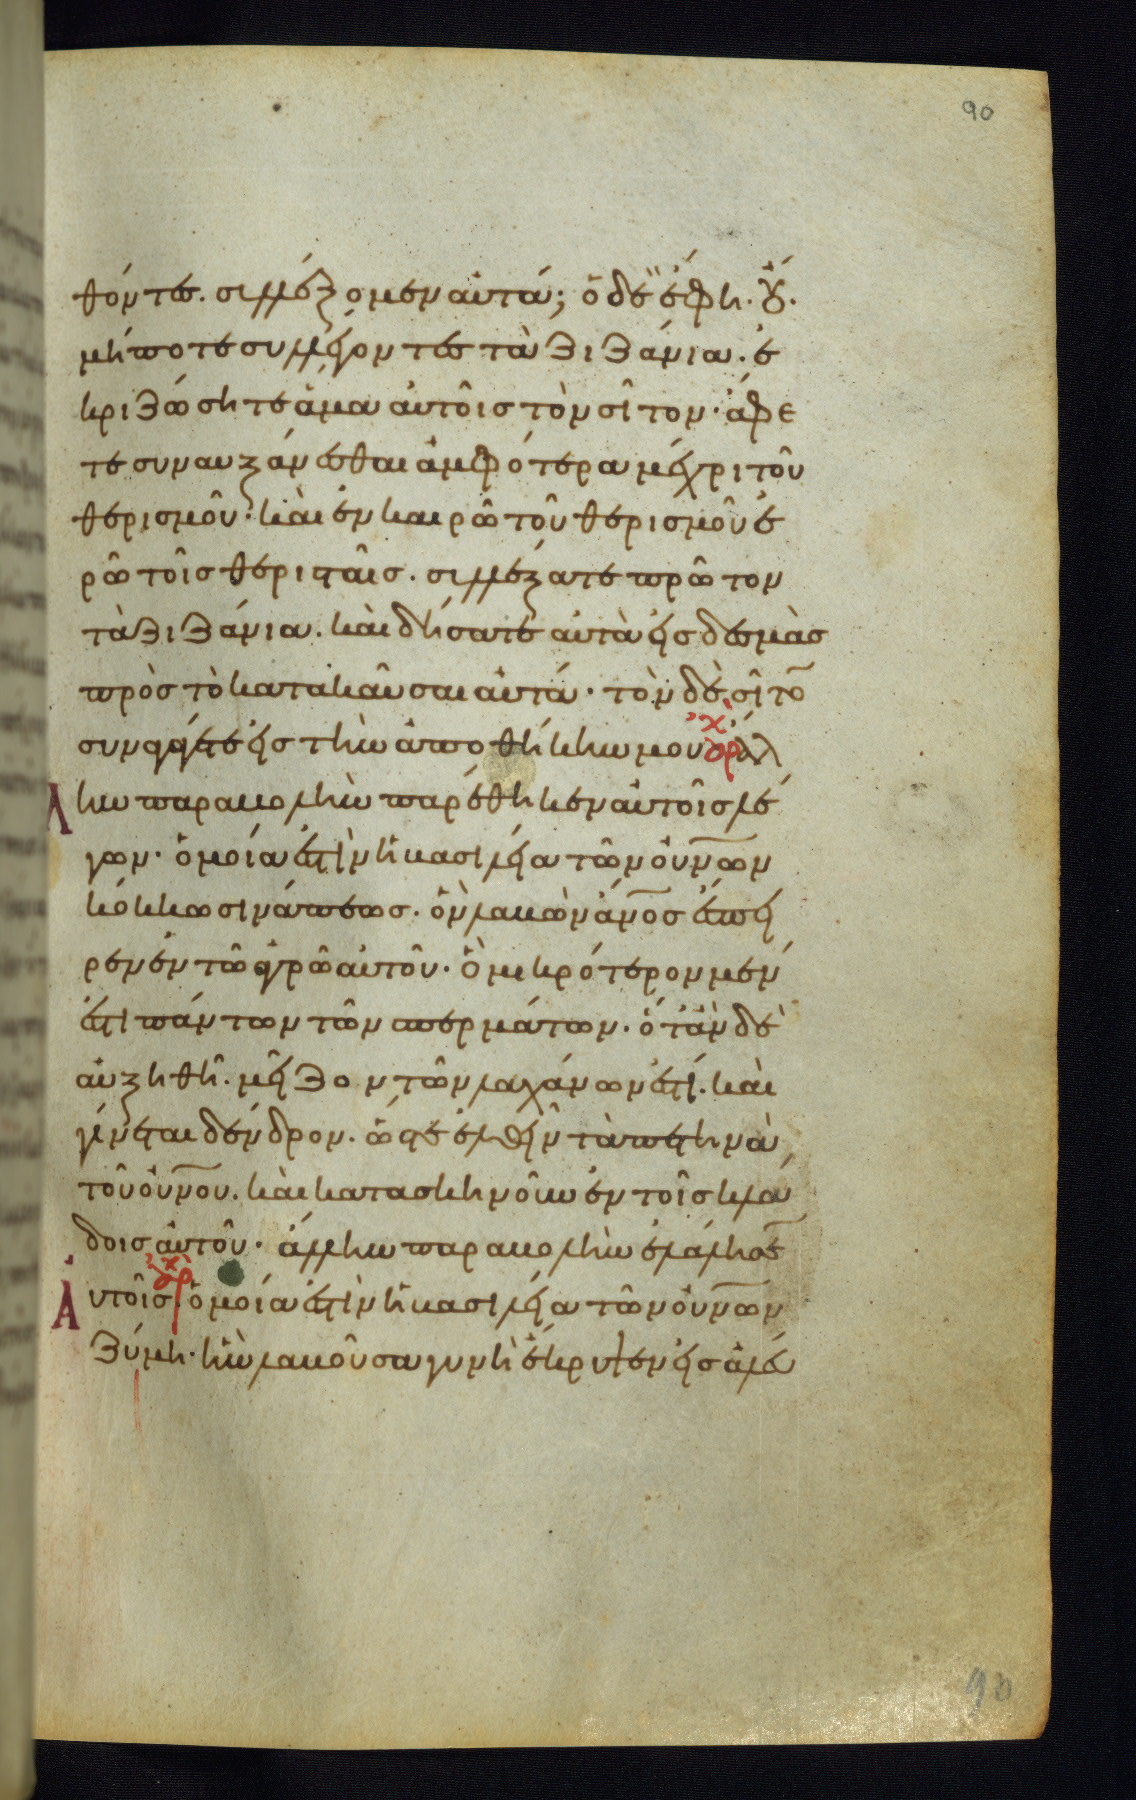 90
θόντες. σιλλέξομεν αὐτά; ὁ δὲ ἔφη. οὔ.
μήποτε συλλέγοντες τὰ ζιζάνια. ἐ
κριζώσητε ἅμα αὐτοῖς τὸν σῖτον. ἄφε
τε συναυξάνεσθαι ἀμφότερα μέχρι τοῦ
θερισμοῦ. καὶ ἐν καιρῶ τοῦ θερισμοῦ ἐ
ρῶ τοῖς θερισταῖς. σιλλέξατε πρῶτον
τὰ ζιζάνια. καὶ δήσατε αὐτὰ εἰς δεσμὰς
πρὸς τὸ κατακαῦσαι αὐτά. τὸν δὲ σῖτο̅
συναγάγετε εἰς τὴν ἀποθήκην μου ἄλ
Λην παραβολὴν παρέθηκεν αὐτοῖς λέ
γων. ὁμοία ἐστὶν ἡ βασιλεία τῶν οὐν̅ων
κόκκω σινάπεως. ὃν λαβὼν ἄν̅ος ἔσπει
ρεν ἐν τῶ ἀγρῶ αὐτοῦ. ὃ μικρότερον μὲν
ἐστι πάντων τῶν σπερμάτων. ὅταν δὲ
αὐξηθῆ. μεῖζον τῶν λαχάνων ἐστί. καὶ
γίνεται δένδρον. ὥστε ἐλθεῖν τὰ πετηνὰ
τοῦ οὐν̅ου. καὶ κατασκηνοῦν ἐν τοῖς κλά
δοις αὐτοῦ. ἄλλην παραβολὴν ἐλάλησε̅
Αὐτοῖς. ὁμοία ἐστὶν ἡ βασιλεία τῶν οὐν̅ων
ζύμη. ἣν λαβοῦσα γυνὴ ἔκρυψεν εἰς ἀλε
90